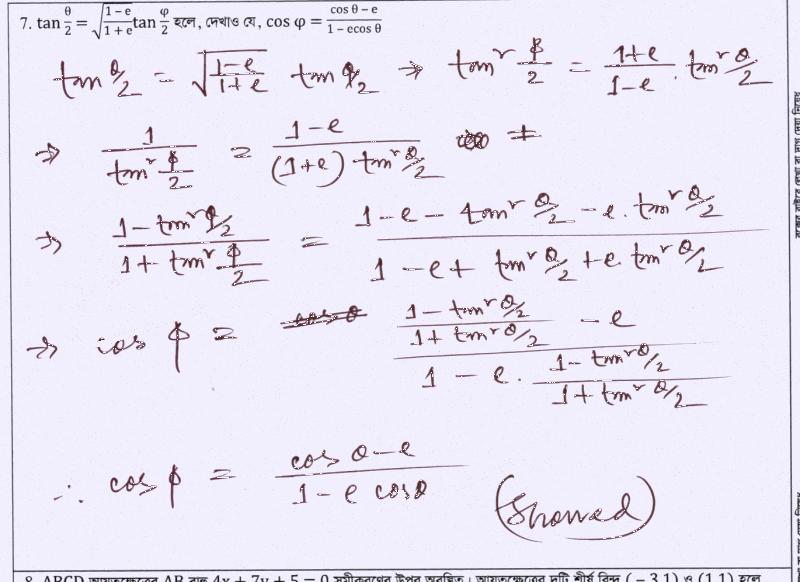 7. tan θ/2 = √((1−e)/(1+e)) tan φ/2 হলে, দেখাও যে, cos φ = (cos θ−e)/(1−ecos θ)
tan θ/2 = √((1−e)/(1+e)) tan φ/2 ⇒ tan² φ/2 = (1+e)/(1−e) . tan² θ/2
⇒ 1/(tan² φ/2) = (1−e)/((1+e) tan² θ/2)
⇒ (1−tan² φ/2)/(1+tan² φ/2) = (1−e−tan² θ/2−e.tan² θ/2)/(1−e+tan² θ/2+e.tan² θ/2)
⇒ cos φ = ((1−tan² θ/2)/(1+tan² θ/2) −e)/(1−e.(1−tan² θ/2)/(1+tan² θ/2))
∴ cos φ = (cos θ−e)/(1−e cosθ) (Showed)
8. ABCD আয়তক্ষেত্রের AB বাহু 4x + 7y + 5 = 0 সমীকরণের উপর অবস্থিত। আয়তক্ষেত্রের দুটি শীর্ষ বিন্দু (−3,1) ও (1,1) হলে